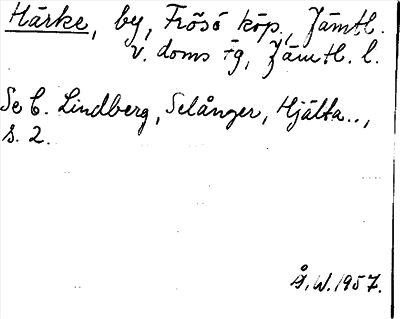 Härke, by, Frösö köp., Jämtl.
v. doms fg, Jämtl. l.
Se C. Lindberg, Selånger, Hjälta..,
s. 2.
Å. W. 1957.